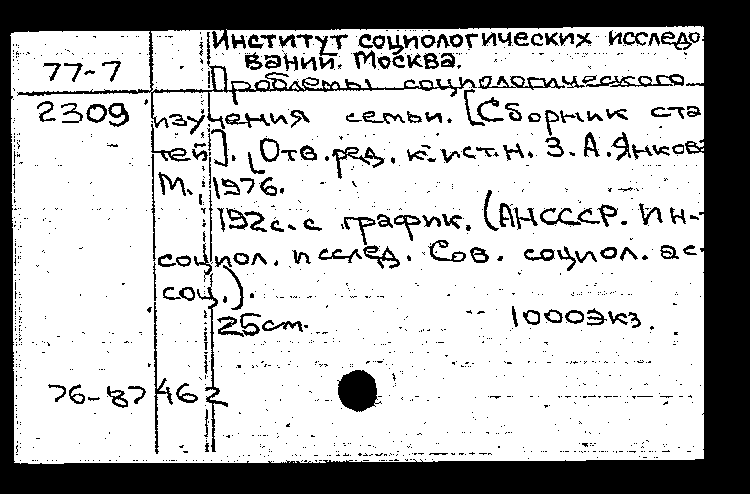 Институт социологических исследо
ваний. Москва.
77-7
Проблемы социологического
2309
изучения семьи. [Сборник ста
тей]. [Отв. ред. к. ист. н. З. А. Янкова
М., 1976.
192 с. с график. (АН СССР. Ин-т
социол. исслед. Сов. социол. ас-
соц.).
25 см. 1000 экз.
76-87462